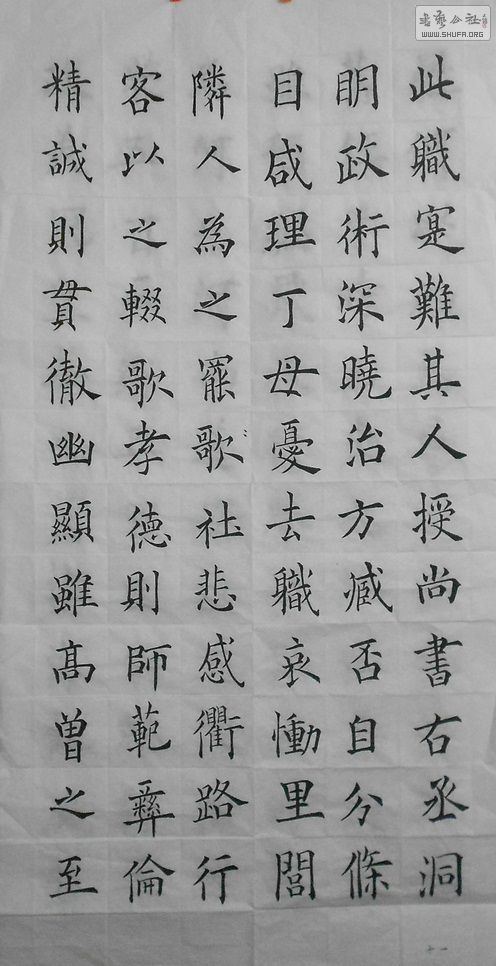 書藝公社
WWW.SHUFA.ORG
此職寔難其人授尚書右丞洞
眀政術深曉治方臧否自分條
目咸理丁母憂去職哀慟里閭
隣人為之罷歌社悲感衢路行
客以之輟歌孝德則師範彝倫
精誠則貫徹幽顯雖髙曽之至